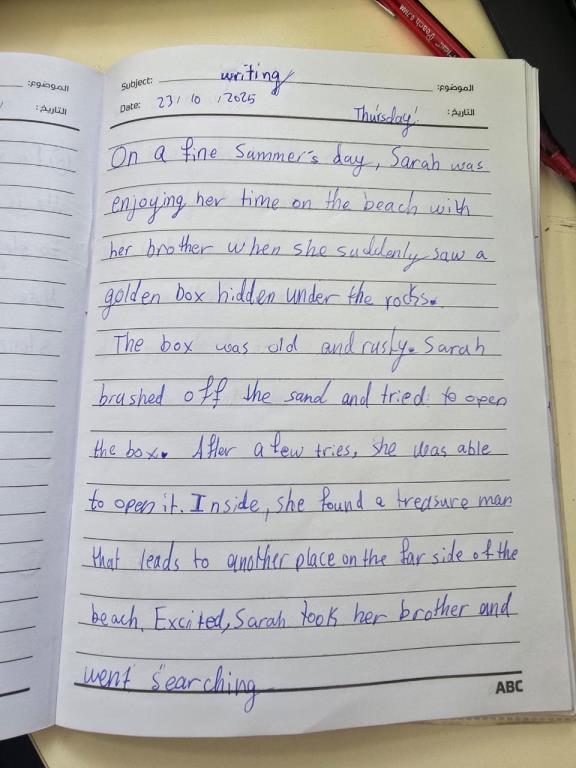 Subject: writing الموضوع:
Date: 23/ 10 / 2025 التاريخ:
Thursday
On a fine Sammer's day, Sarah was
enjoying her time on the beach with
her brother when she suddenly saw a
golden box hidden under the rocks.
The box was old and rusty. Sarah
brushed off the sand and tried to open
the box. After a few tries, she was able
to open it. Inside, she found a treasure map
that leads to another place on the far side of the
beach. Excited, Sarah took her brother and
went searching
ABC
الموضوع:
التاريخ: